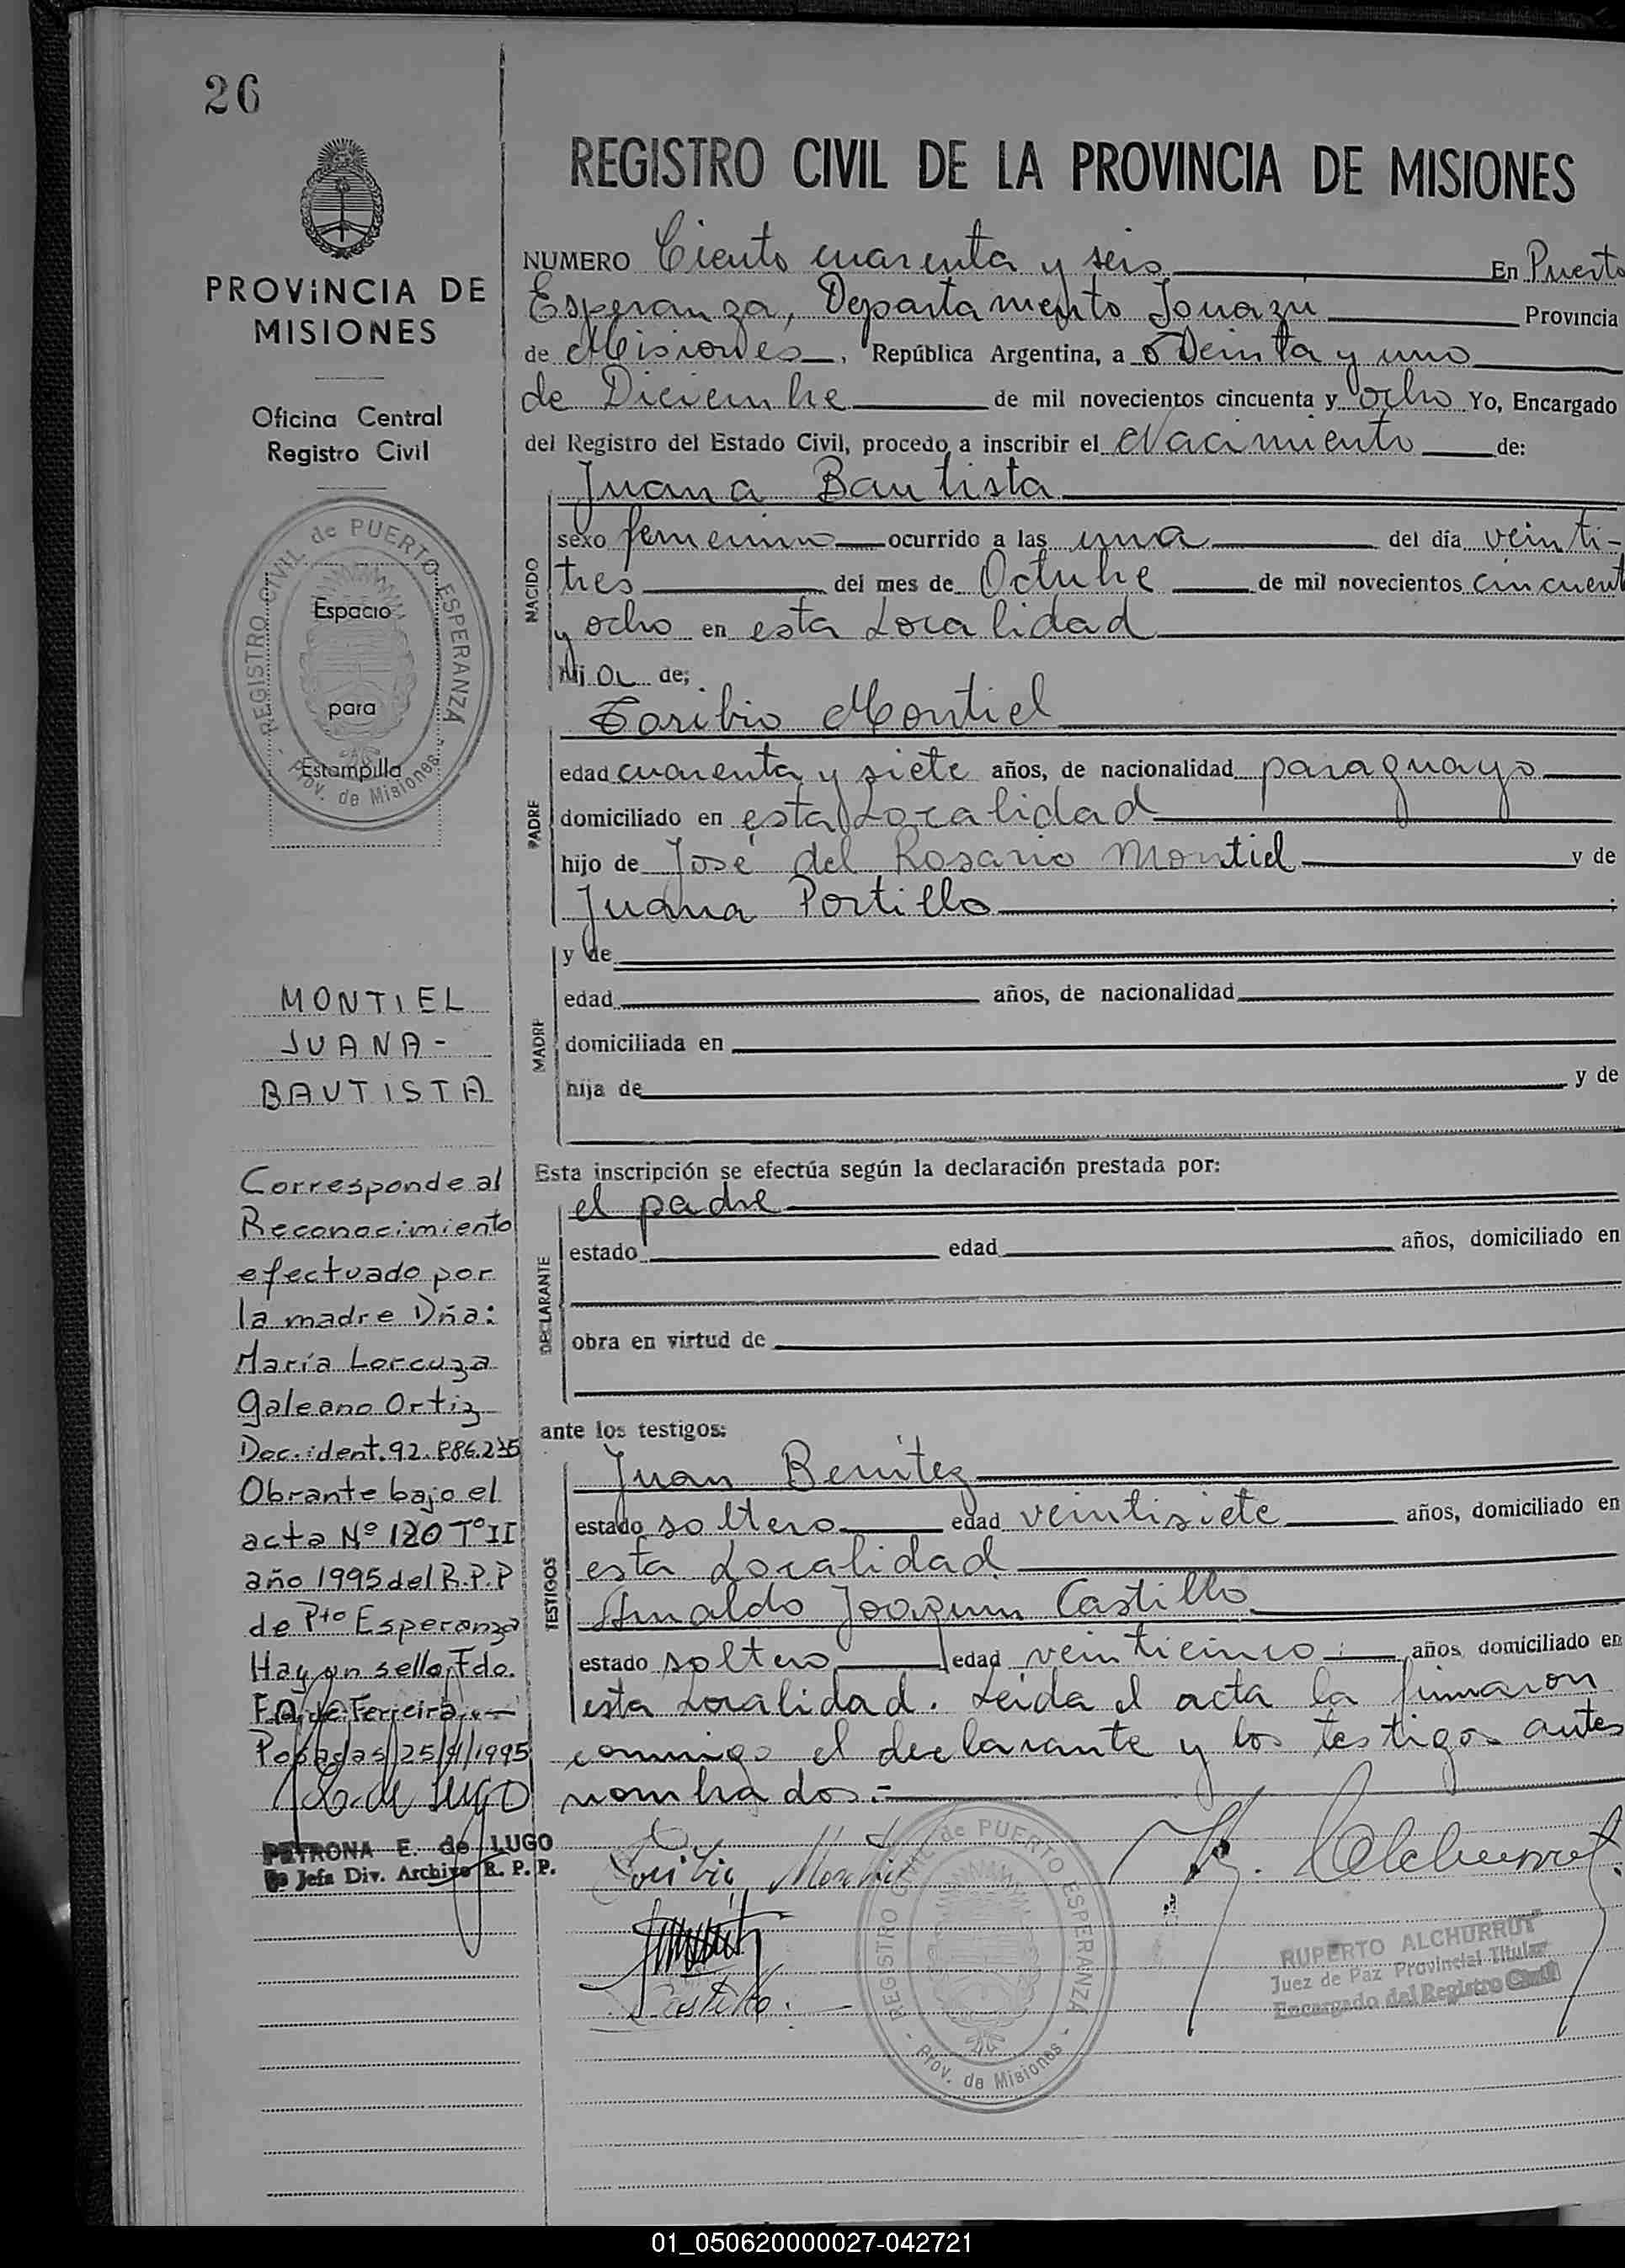 26
PROVINCIA DE
MISIONES
Oficina Central
Registro Civil
REGISTRO CIVIL de PUERTO ESPERANZA
Prov. de Misiones
Espacio
para
Estampilla
MONTIEL
JUANA -
BAUTISTA
Corresponde al
Reconocimiento
efectuado por
la madre Dña:
María Lorcuza
Galeano Ortiz
Doc. ident. 92.886.235
Obrante bajo el
acta Nº 120 Tº II
año 1995 del R.P.P
de Pto Esperanza
Hay un sello, Fdo.
de Ferreira.-
Posadas 25/9/1995
de Lugo
PETRONA E. de LUGO
Jefa Div. Archivo R. P. P.
REGISTRO CIVIL DE LA PROVINCIA DE MISIONES
NUMERO Ciento cuarenta y seis En Puerto
Esperanza, Departamento Iguazú Provincia
de Misiones, República Argentina, a treinta y uno
de Diciembre de mil novecientos cincuenta y ocho Yo, Encargado
del Registro del Estado Civil, procedo a inscribir el Nacimiento de:
NACIDO
Juana Bautista
sexo femenino ocurrido a las una del día veinti-
tres del mes de Octubre de mil novecientos cincuent
y ocho en esta Localidad
hija de;
PADRE
Toribio Montiel
edad cuarenta y siete años, de nacionalidad paraguayo
domiciliado en esta Localidad
hijo de José del Rosario Montiel y de
Juana Portillo
MADRE
y de
edad años, de nacionalidad
domiciliada en
hija de y de
Esta inscripción se efectúa según la declaración prestada por:
DECLARANTE
el padre
estado edad años, domiciliado en
obra en virtud de
ante los testigos:
TESTIGOS
Juan Benítez
estado soltero edad veintisiete años, domiciliado en
esta Localidad
Arnaldo Joaquin Castillo
estado soltero edad veinticinco años, domiciliado en
esta Localidad. Leída el acta la firmaron
conmigo el declarante y los testigos antes
nombrados.-
Toribio Montiel
Castillo.
REGISTRO CIVIL de PUERTO ESPERANZA
Prov. de Misiones
RUPERTO ALCHURRUT
Juez de Paz Provincial Titular
Encargado del Registro Civil
01_050620000027-042721